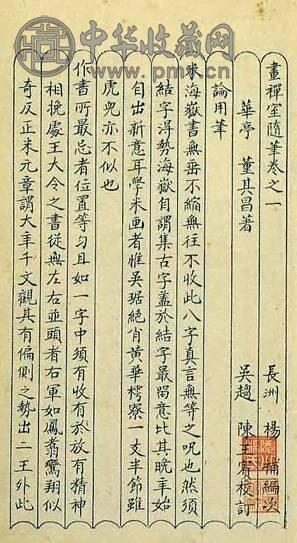 中华收藏网
畫禪室隨筆卷之一 長洲 楊補編次
華亭 董其昌著 吳趨 陳王賓校訂
論用筆
米海嶽書無垂不縮無往不收此八字真言無等之呪也然須
結字得勢海嶽自謂集古字蓋於結字最留意比其晚年始
自出新意耳學米画者惟吳琚絕肖黃華樗寮一支半節雖
虎兕亦不似也
作書所最忌者位置等勻且如一字中須有收有於放有精神
相挽處王大令之書從無左右並頭者右軍如鳳翥鸞翔似
奇反正米元章謂大年千文觀其有偏側之勢出二王外此